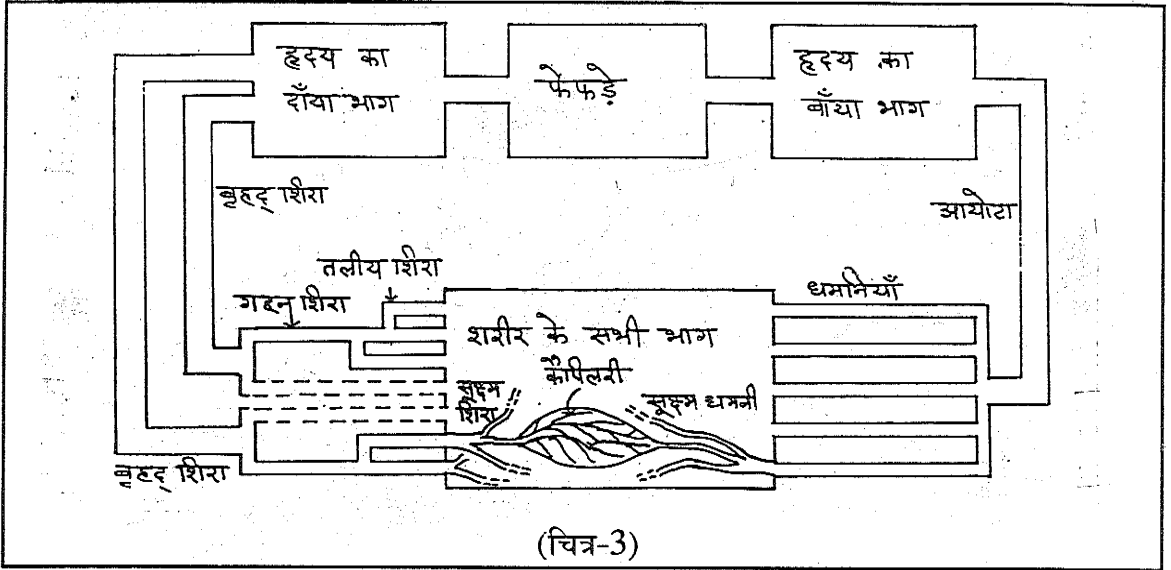 हृदय का
दाँया भाग
फेफड़े
हृदय का
बाँया भाग
बृहद् शिरा
आयोटा
तलीय शिरा
गहन शिरा
धमनियाँ
शरीर के सभी भाग
कैपिलरी
सूक्ष्म
शिरा
सूक्ष्म धमनी
बृहद् शिरा
(चित्र-3)